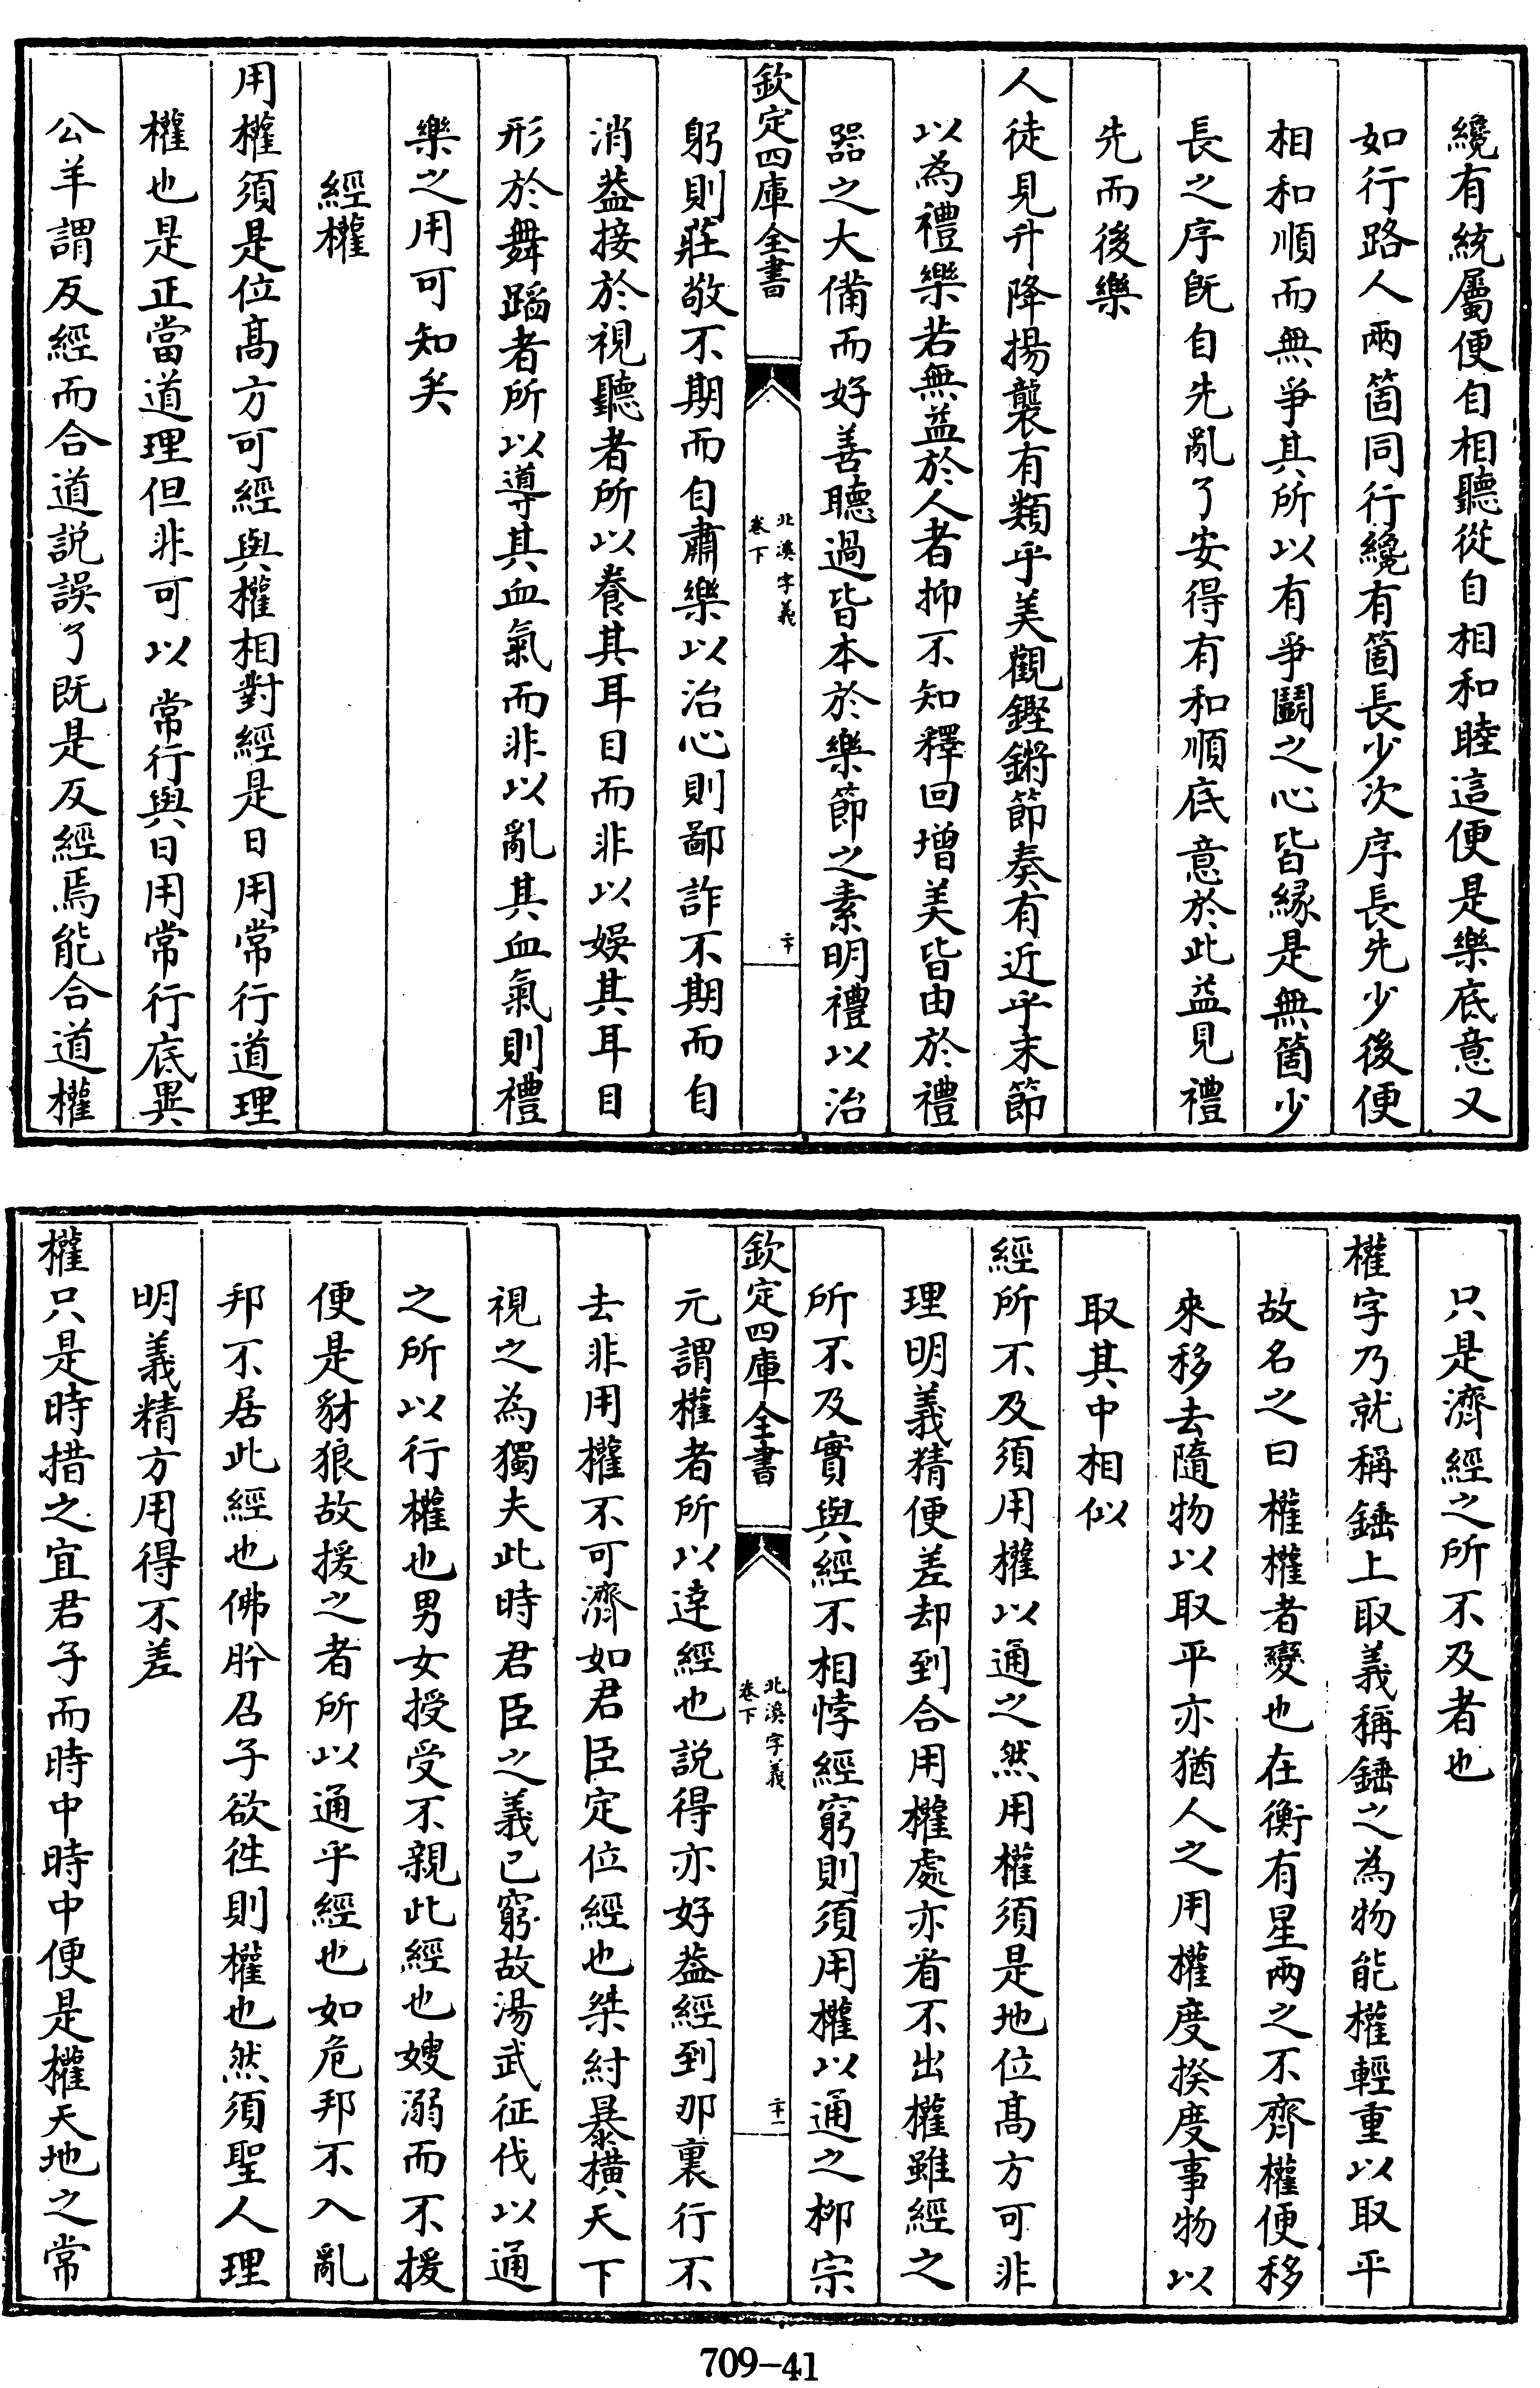 纔有統屬便自相聽從自相和睦這便是樂底意又
如行路人兩箇同行纔有箇長少次序長先少後便
相和順而無爭其所以有爭鬪之心皆緣是無箇少
長之序旣自先亂了安得有和順底意於此益見禮
先而後樂
人徒見升降揚襲有類乎美觀鏗鏘節奏有近乎末節
以為禮樂若無益於人者抑不知釋回增美皆由於禮
器之大備而好善聽過皆本於樂節之素明禮以治
欽定四庫全書
北溪字義
卷下
二十
躬則莊敬不期而自肅樂以治心則鄙詐不期而自
消葢接於視聽者所以養其耳目而非以娛其耳目
形於舞蹈者所以導其血氣而非以亂其血氣則禮
樂之用可知矣
經權
用權須是位髙方可經與權相對經是日用常行道理
權也是正當道理但非可以常行與日用常行底異
公羊謂反經而合道説誤了既是反經焉能合道權
只是濟經之所不及者也
權字乃就稱錘上取義稱錘之為物能權輕重以取平
故名之曰權權者變也在衡有星兩之不齊權便移
來移去隨物以取平亦猶人之用權度揆度事物以
取其中相似
經所不及須用權以通之然用權須是地位髙方可非
理明義精便差却到合用權處亦看不出權雖經之
所不及實與經不相悖經窮則須用權以通之柳宗
欽定四庫全書
北溪字義
卷下
二十一
元謂權者所以達經也説得亦好葢經到那裏行不
去非用權不可濟如君臣定位經也桀紂暴橫天下
視之為獨夫此時君臣之義已窮故湯武征伐以通
之所以行權也男女授受不親此經也嫂溺而不援
便是豺狼故援之者所以通乎經也如危邦不入亂
邦不居此經也佛肸召子欲徃則權也然須聖人理
明義精方用得不差
權只是時措之宜君子而時中時中便是權天地之常
709-41